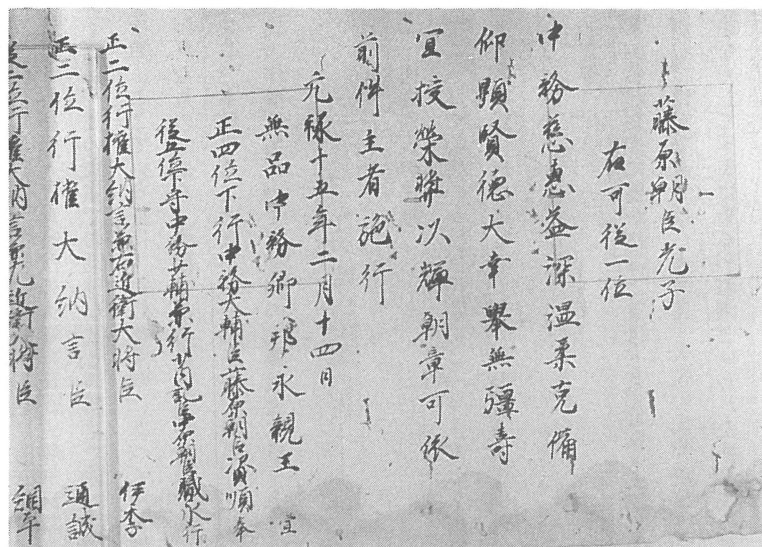 藤原朝臣光子
右可從一位
中務慈惠益深温柔克備
仰顯賢德大幸擧無彊壽
宜授榮爵以輝朝章可依
前件主者施行
元祿十五年二月十四日
無品中務卿邦永親王 宣
正四位下行中務大輔臣藤原朝臣資順奉
從五位下守中務少輔兼行少内記臣中原朝臣職永行
正二位行権大納言兼右近衛大将臣 伊季
正二位行権大納言臣 通誠
從二位行権大納言兼左近衛大将臣 綱平